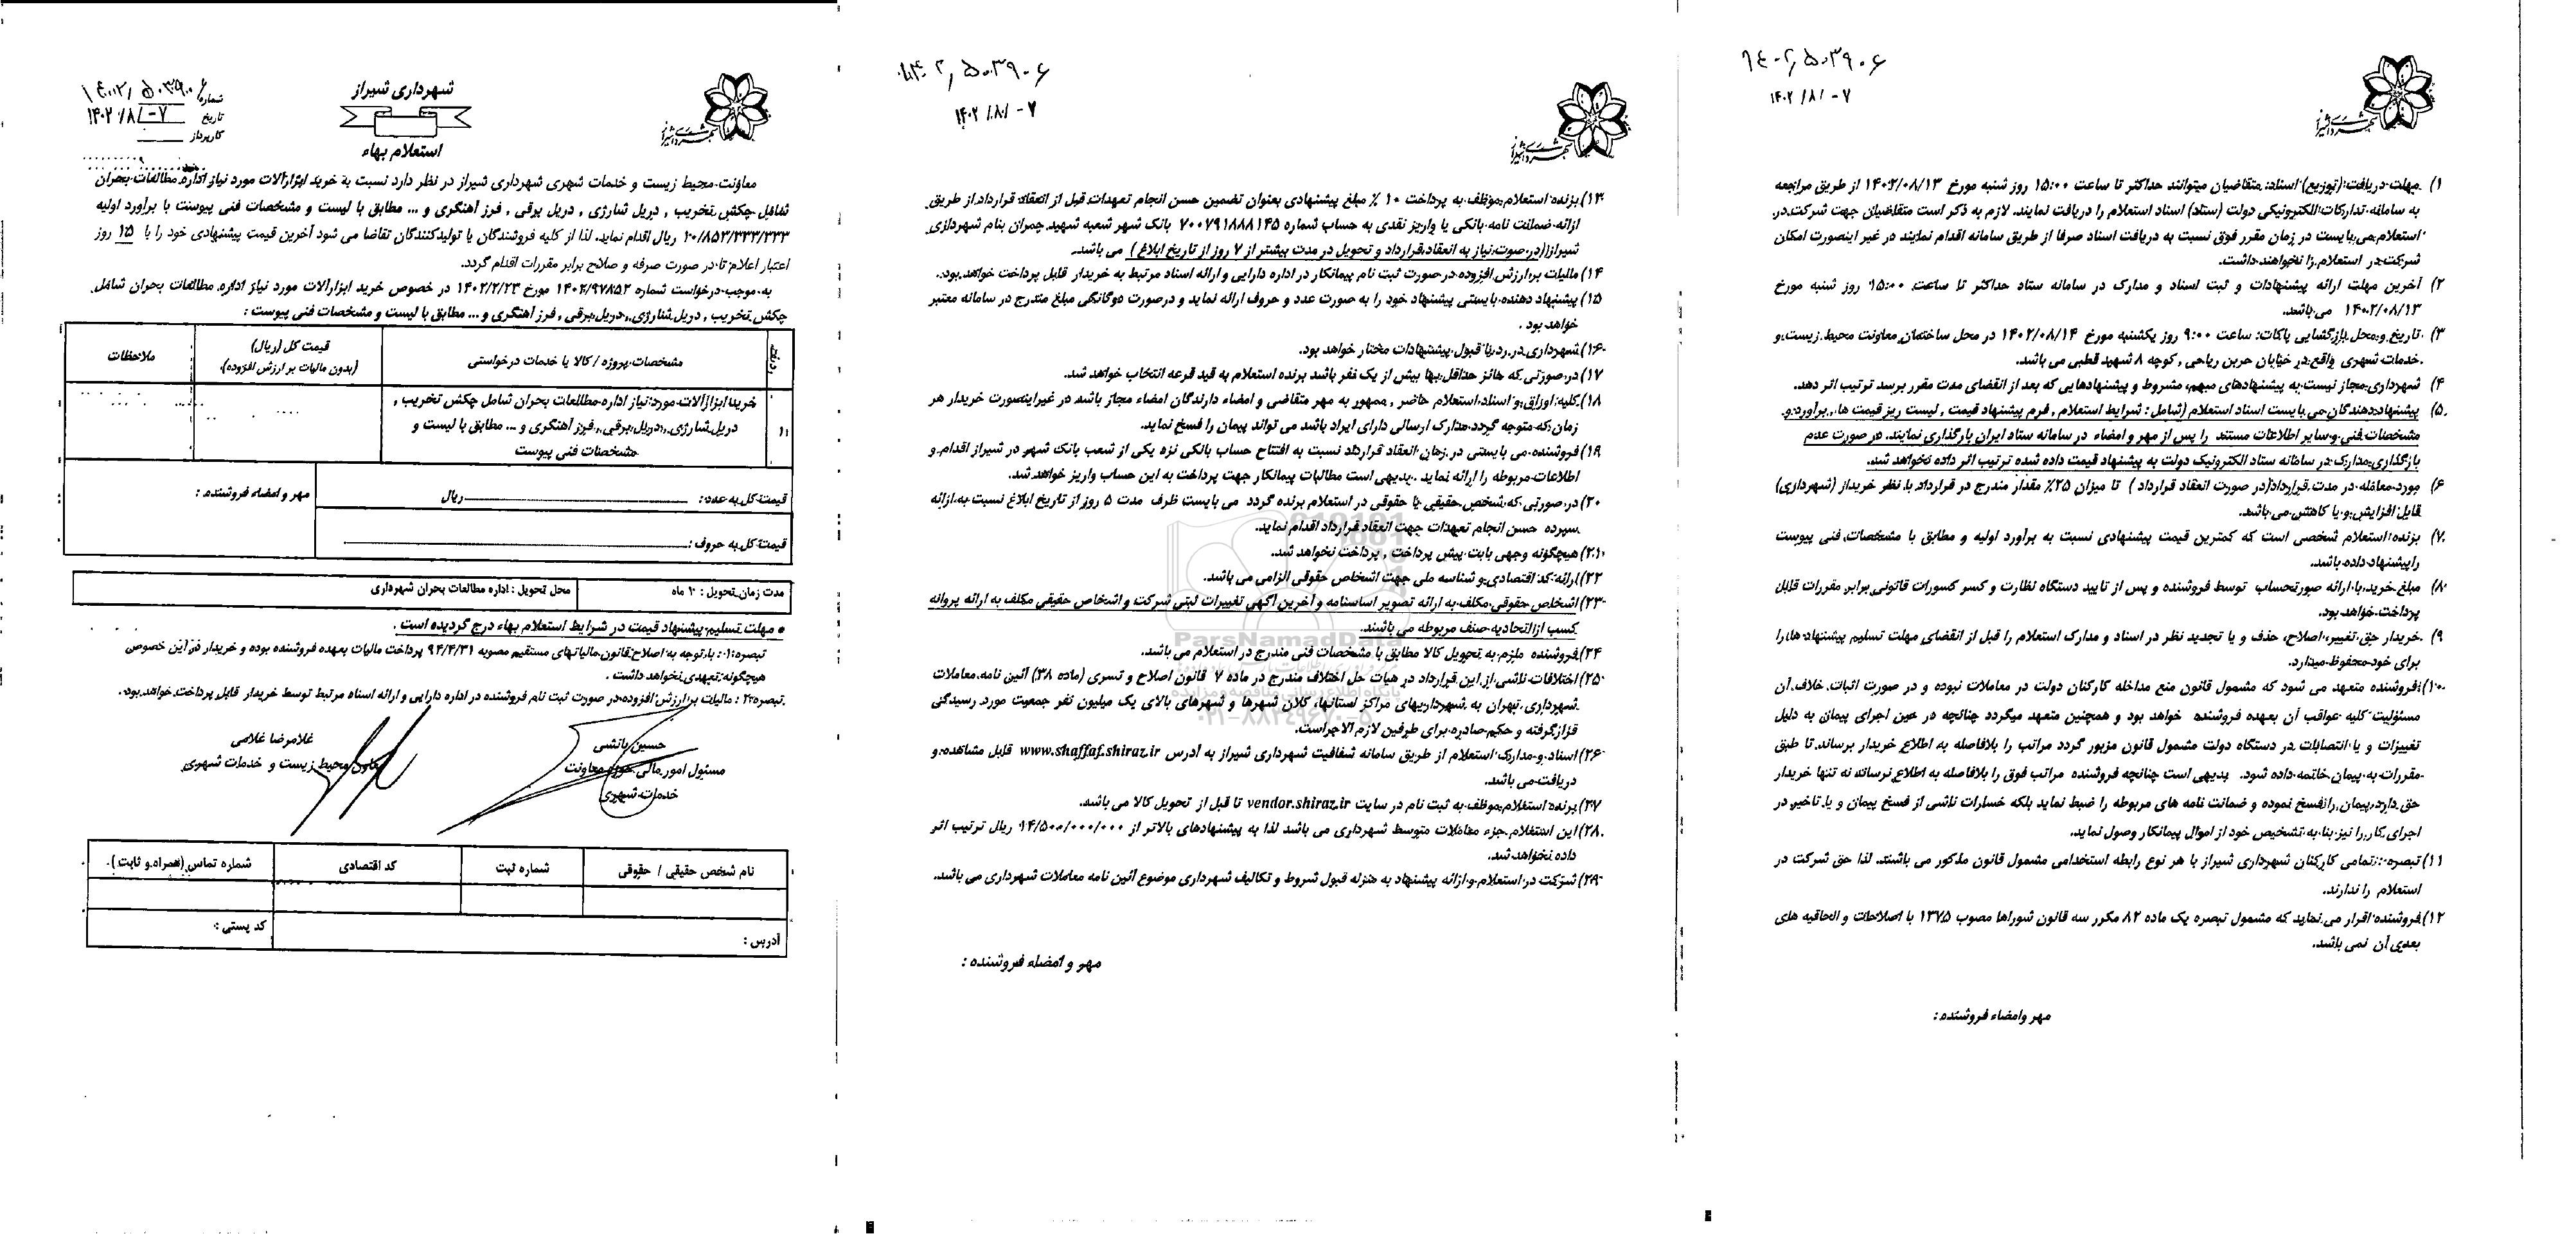 شهرداری شیراز
استعلام بهاء
شماره ۱۴۰۲/۵۰۳۹۰۶
تاریخ ۱۴۰۲/۸/-۷
کارپرداز
معاونت محیط زیست و خدمات شهری شهرداری شیراز در نظر دارد نسبت به خرید ابزارآلات مورد نیاز اداره مطالعات بحران
شامل چکش تخریب , دریل شارژی , دریل برقی , فرز آهنگری و ... مطابق با لیست و مشخصات فنی پیوست با برآورد اولیه
۱۰/۸۵۳/۳۳۳/۳۳۳ ریال اقدام نماید. لذا از کلیه فروشندگان یا تولیدکنندگان تقاضا می شود آخرین قیمت پیشنهادی خود را با ۱۵ روز
اعتبار اعلام تا در صورت صرفه و صلاح برابر مقررات اقدام گردد.
به موجب درخواست شماره ۱۴۰۲/۹۷۸۵۲ مورخ ۱۴۰۲/۲/۲۳ در خصوص خرید ابزارآلات مورد نیاز اداره مطالعات بحران شامل
چکش تخریب , دریل شارژی , دریل برقی , فرز آهنگری و ... مطابق با لیست و مشخصات فنی پیوست :
ردیف
مشخصات پروژه / کالا یا خدمات درخواستی
قیمت کل (ریال)
(بدون مالیات بر ارزش افزوده)
ملاحظات
۱
خرید ابزارآلات مورد نیاز اداره مطالعات بحران شامل چکش تخریب ,
دریل شارژی , دریل برقی , فرز آهنگری و ... مطابق با لیست و
مشخصات فنی پیوست
قیمت کل به عدد : ریال
مهر و امضاء فروشنده :
قیمت کل به حروف :
مدت زمان تحویل : ۱۰ ماه
محل تحویل : اداره مطالعات بحران شهرداری
• مهلت تسلیم پیشنهاد قیمت در شرایط استعلام بهاء درج گردیده است .
تبصره۱: با توجه به اصلاح قانون مالیاتهای مستقیم مصوبه ۹۴/۴/۳۱ پرداخت مالیات بعهده فروشنده بوده و خریدار در این خصوص
هیچگونه تعهدی نخواهد داشت .
تبصره۲ : مالیات بر ارزش افزوده در صورت ثبت نام فروشنده در اداره دارایی و ارائه اسناد مرتبط توسط خریدار قابل پرداخت خواهد بود.
حسین باتشی
مسئول امور مالی حوزه معاونت
خدمات شهری
غلامرضا غلامی
معاون محیط زیست و خدمات شهری
نام شخص حقیقی / حقوقی
شماره ثبت
کد اقتصادی
شماره تماس (همراه و ثابت)
آدرس :
کد پستی :
۱۴۰۲/۵۰۳۹۰۶
۱۴۰۲/۸/-۷
۱۳) برنده استعلام موظف به پرداخت ۱۰ ٪ مبلغ پیشنهادی بعنوان تضمین حسن انجام تعهدات قبل از انعقاد قرارداد از طریق
ارائه ضمانت نامه بانکی یا واریز نقدی به حساب شماره ۷۰۰۷۹۱۸۸۸۱۴۵ بانک شهر شعبه شهید چمران بنام شهرداری
شیراز(در صورت نیاز به انعقاد قرارداد و تحویل در مدت بیشتر از ۷ روز از تاریخ ابلاغ ) می باشد.
۱۴) مالیات بر ارزش افزوده در صورت ثبت نام پیمانکار در اداره دارایی و ارائه اسناد مرتبط به خریدار قابل پرداخت خواهد بود.
۱۵) پیشنهاد دهنده بایستی پیشنهاد خود را به صورت عدد و حروف ارائه نماید و درصورت دوگانگی مبلغ مندرج در سامانه معتبر
خواهد بود .
۱۶) شهرداری در رد یا قبول پیشنهادات مختار خواهد بود.
۱۷) در صورتی که حائز حداقل بها بیش از یک نفر باشد برنده استعلام به قید قرعه انتخاب خواهد شد.
۱۸) کلیه اوراق و اسناد استعلام حاضر , ممهور به مهر متقاضی و امضاء دارندگان امضاء مجاز باشد در غیراینصورت خریدار هر
زمان که متوجه گردد مدارک ارسالی دارای ایراد باشد می تواند پیمان را فسخ نماید.
۱۹) فروشنده می بایستی در زمان انعقاد قرارداد نسبت به افتتاح حساب بانکی نزد یکی از شعب بانک شهر در شیراز اقدام و
اطلاعات مربوطه را ارائه نماید . بدیهی است مطالبات پیمانکار جهت پرداخت به این حساب واریز خواهد شد.
۲۰) در صورتی که شخص حقیقی یا حقوقی در استعلام برنده گردد می بایست ظرف مدت ۵ روز از تاریخ ابلاغ نسبت به ارائه
سپرده حسن انجام تعهدات جهت انعقاد قرارداد اقدام نماید.
۲۱) هیچگونه وجهی بابت پیش پرداخت , پرداخت نخواهد شد.
۲۲) ارائه کد اقتصادی و شناسه ملی جهت اشخاص حقوقی الزامی می باشد.
۲۳) اشخاص حقوقی مکلف به ارائه تصویر اساسنامه و آخرین آگهی تغییرات ثبتی شرکت و اشخاص حقیقی مکلف به ارائه پروانه
کسب از اتحادیه صنف مربوطه می باشند.
۲۴) فروشنده ملزم به تحویل کالا مطابق با مشخصات فنی مندرج در استعلام می باشد.
۲۵) اختلافات ناشی از این قرارداد در هیات حل اختلاف مندرج در ماده ۷ قانون اصلاح و تسری (ماده ۳۸) آئین نامه معاملات
شهرداری تهران به شهرداریهای مراکز استانها، کلان شهرها و شهرهای بالای یک میلیون نفر جمعیت مورد رسیدگی
قرار گرفته و حکم صادره برای طرفین لازم الاجراست.
۲۶) اسناد و مدارک استعلام از طریق سامانه شفافیت شهرداری شیراز به آدرس www.shaffaf.shiraz.ir قابل مشاهده و
دریافت می باشد.
۲۷) برنده استعلام موظف به ثبت نام در سایت vendor.shiraz.ir تا قبل از تحویل کالا می باشد.
۲۸) این استعلام جزء معاملات متوسط شهرداری می باشد لذا به پیشنهادهای بالاتر از ۱۴/۵۰۰/۰۰۰/۰۰۰ ریال ترتیب اثر
داده نخواهد شد.
۲۹) شرکت در استعلام و ارائه پیشنهاد به منزله قبول شروط و تکالیف شهرداری موضوع آئین نامه معاملات شهرداری می باشد.
مهر و امضاء فروشنده :
ParsNamadData
پایگاه اطلاع رسانی مناقصه و مزایده
۱۴۰۲/۵۰۳۹۰۶
۱۴۰۲/۸/-۷
۱) مهلت دریافت (توزیع) اسناد: متقاضیان میتوانند حداکثر تا ساعت ۱۵:۰۰ روز شنبه مورخ ۱۴۰۲/۰۸/۱۳ از طریق مراجعه
به سامانه تدارکات الکترونیکی دولت (ستاد) اسناد استعلام را دریافت نمایند. لازم به ذکر است متقاضیان جهت شرکت در
استعلام می بایست در زمان مقرر فوق نسبت به دریافت اسناد صرفا از طریق سامانه اقدام نمایند در غیر اینصورت امکان
شرکت در استعلام را نخواهند داشت.
۲) آخرین مهلت ارائه پیشنهادات و ثبت اسناد و مدارک در سامانه ستاد حداکثر تا ساعت ۱۵:۰۰ روز شنبه مورخ
۱۴۰۲/۰۸/۱۳ می باشد.
۳) تاریخ و محل بازگشایی پاکات: ساعت ۹:۰۰ روز یکشنبه مورخ ۱۴۰۲/۰۸/۱۴ در محل ساختمان معاونت محیط زیست و
خدمات شهری واقع در خیابان حربن ریاحی , کوچه ۸ شهید قطبی می باشد.
۴) شهرداری مجاز نیست به پیشنهادهای مبهم، مشروط و پیشنهادهایی که بعد از انقضای مدت مقرر برسد ترتیب اثر دهد.
۵) پیشنهاددهندگان می بایست اسناد استعلام (شامل : شرایط استعلام , فرم پیشنهاد قیمت , لیست ریز قیمت ها , برآورد و
مشخصات فنی و سایر اطلاعات مستند را پس از مهر و امضاء در سامانه ستاد ایران بارگذاری نمایند. در صورت عدم
بارگذاری مدارک در سامانه ستاد الکترونیک دولت به پیشنهاد قیمت داده شده ترتیب اثر داده نخواهد شد.
۶) مورد معامله در مدت قرارداد(در صورت انعقاد قرارداد ) تا میزان ۲۵٪ مقدار مندرج در قرارداد با نظر خریدار (شهرداری)
قابل افزایش و یا کاهش می باشد.
۷) برنده استعلام شخصی است که کمترین قیمت پیشنهادی نسبت به برآورد اولیه و مطابق با مشخصات فنی پیوست
را پیشنهاد داده باشد.
۸) مبلغ خرید با ارائه صورتحساب توسط فروشنده و پس از تایید دستگاه نظارت و کسر کسورات قانونی برابر مقررات قابل
پرداخت خواهد بود.
۹) خریدار حق تغییر، اصلاح، حذف و یا تجدید نظر در اسناد و مدارک استعلام را قبل از انقضای مهلت تسلیم پیشنهادها را
برای خود محفوظ میدارد.
۱۰) فروشنده متعهد می شود که مشمول قانون منع مداخله کارکنان دولت در معاملات نبوده و در صورت اثبات خلاف آن
مسئولیت کلیه عواقب آن بعهده فروشنده خواهد بود و همچنین متعهد میگردد چنانچه در حین اجرای پیمان به دلیل
تغییرات و یا انتصابات در دستگاه دولت مشمول قانون مزبور گردد مراتب را بلافاصله به اطلاع خریدار برساند تا طبق
مقررات به پیمان خاتمه داده شود. بدیهی است چنانچه فروشنده مراتب فوق را بلافاصله به اطلاع نرساند نه تنها خریدار
حق دارد پیمان را فسخ نموده و ضمانت نامه های مربوطه را ضبط نماید بلکه خسارات ناشی از فسخ پیمان و یا تاخیر در
اجرای کار را نیز بنا به تشخیص خود از اموال پیمانکار وصول نماید.
۱۱) تبصره : تمامی کارکنان شهرداری شیراز با هر نوع رابطه استخدامی مشمول قانون مذکور می باشند. لذا حق شرکت در
استعلام را ندارند.
۱۲) فروشنده اقرار می نماید که مشمول تبصره یک ماده ۸۲ مکرر سه قانون شوراها مصوب ۱۳۷۵ با اصلاحات و الحاقیه های
بعدی آن نمی باشد.
مهر وامضاء فروشنده :